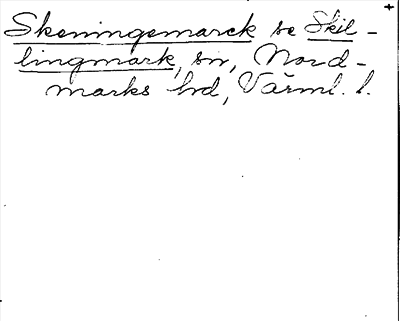 Skeningsmarck se Skil-
lingmark, sn, Nord-
marks hd, Värml. l.